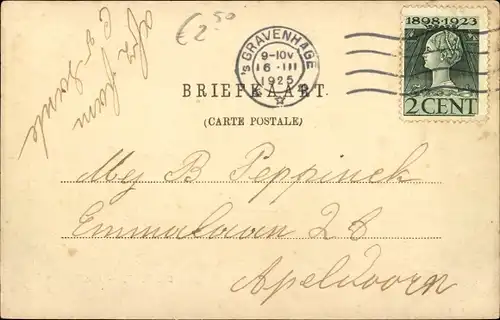 €2.50
's GRAVENHAGE
9-10V
16 III
1925
1898-1923
2 CENT
BRIEFKAART.
(CARTE POSTALE)
Mej B Peppinck
Emmalaan 28
Apeldoorn